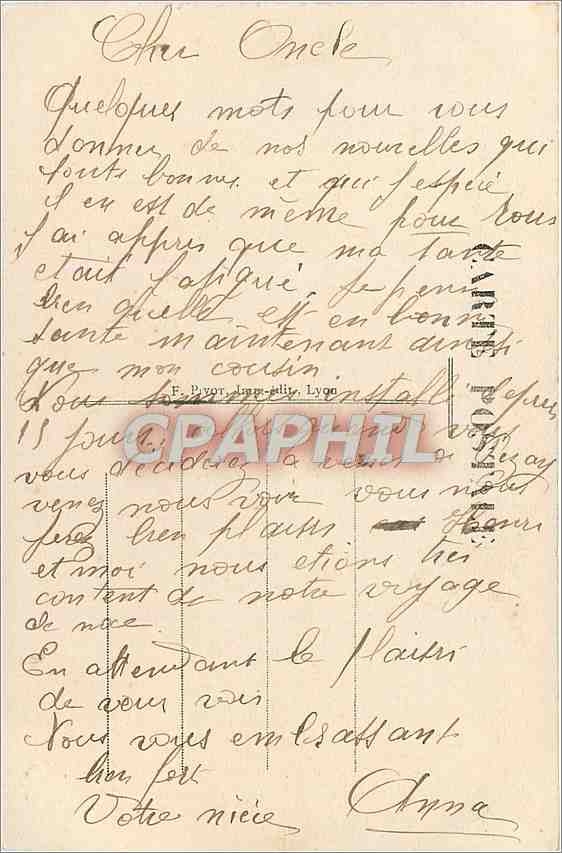 Cher Oncle
Quelques mots pour vous
donner de nos nouvelles qui
sont bonnes et qui j'espère
il en est de même pour vous
J'ai appris que ma tante
était fatigué. Je pense
bien quelle est en bonne
santé maintenant ainsi
que mon cousin
F. Pivot, Imp.-édit., Lyon
Nous sommes installé depuis
15 jours vous
CPAPHIL
vous décideser a venir a
venez nous voir vous nous
ferez bien plaisir Henri
et moi nous etions très
content de notre voyage
de noce
En attendant le plaisir
de vous voir
Nous vous embrassant
bien fort
Votre nièce Anna
CARTE POSTALE